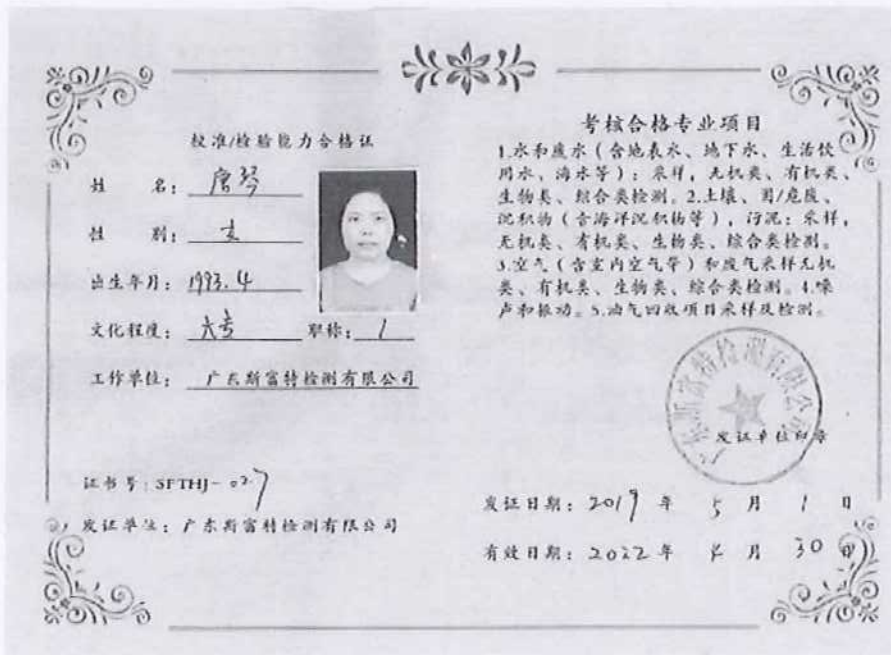 校准/检验能力合格证
姓 名: 唐琴
性 别: 女
出生年月: 1993.4
文化程度: 大专 职称: /
工作单位: 广东斯富特检测有限公司
证书号: SFTHJ-027
发证单位: 广东斯富特检测有限公司
考核合格专业项目
1.水和废水(含地表水、地下水、生活饮
用水、海水等): 采样, 无机类、有机类、
生物类、综合类检测。2.土壤、固/危废、
沉积物(含海洋沉积物等), 污泥: 采样,
无机类、有机类、生物类、综合类检测。
3.空气(含室内空气等)和废气采样无机
类、有机类、生物类、综合类检测。4.噪
声和振动。5.油气回收项目采样及检测。
广东斯富特检测有限公司
发证单位印章
发证日期: 2019 年 5 月 1 日
有效日期: 2022 年 4 月 30 日